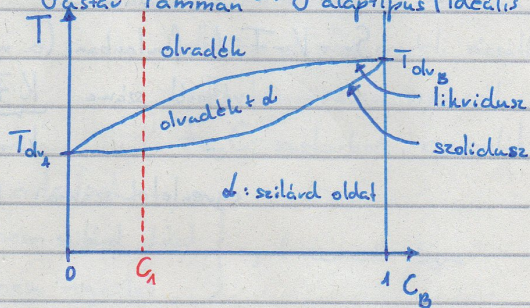 Gustav Tamman
alaptípus
ideális
T
olvadék
Tolv_B
likvidusz
olvadék + α
Tolv_A
szolidusz
α: szilárd oldat
0
C₁
1
C_B